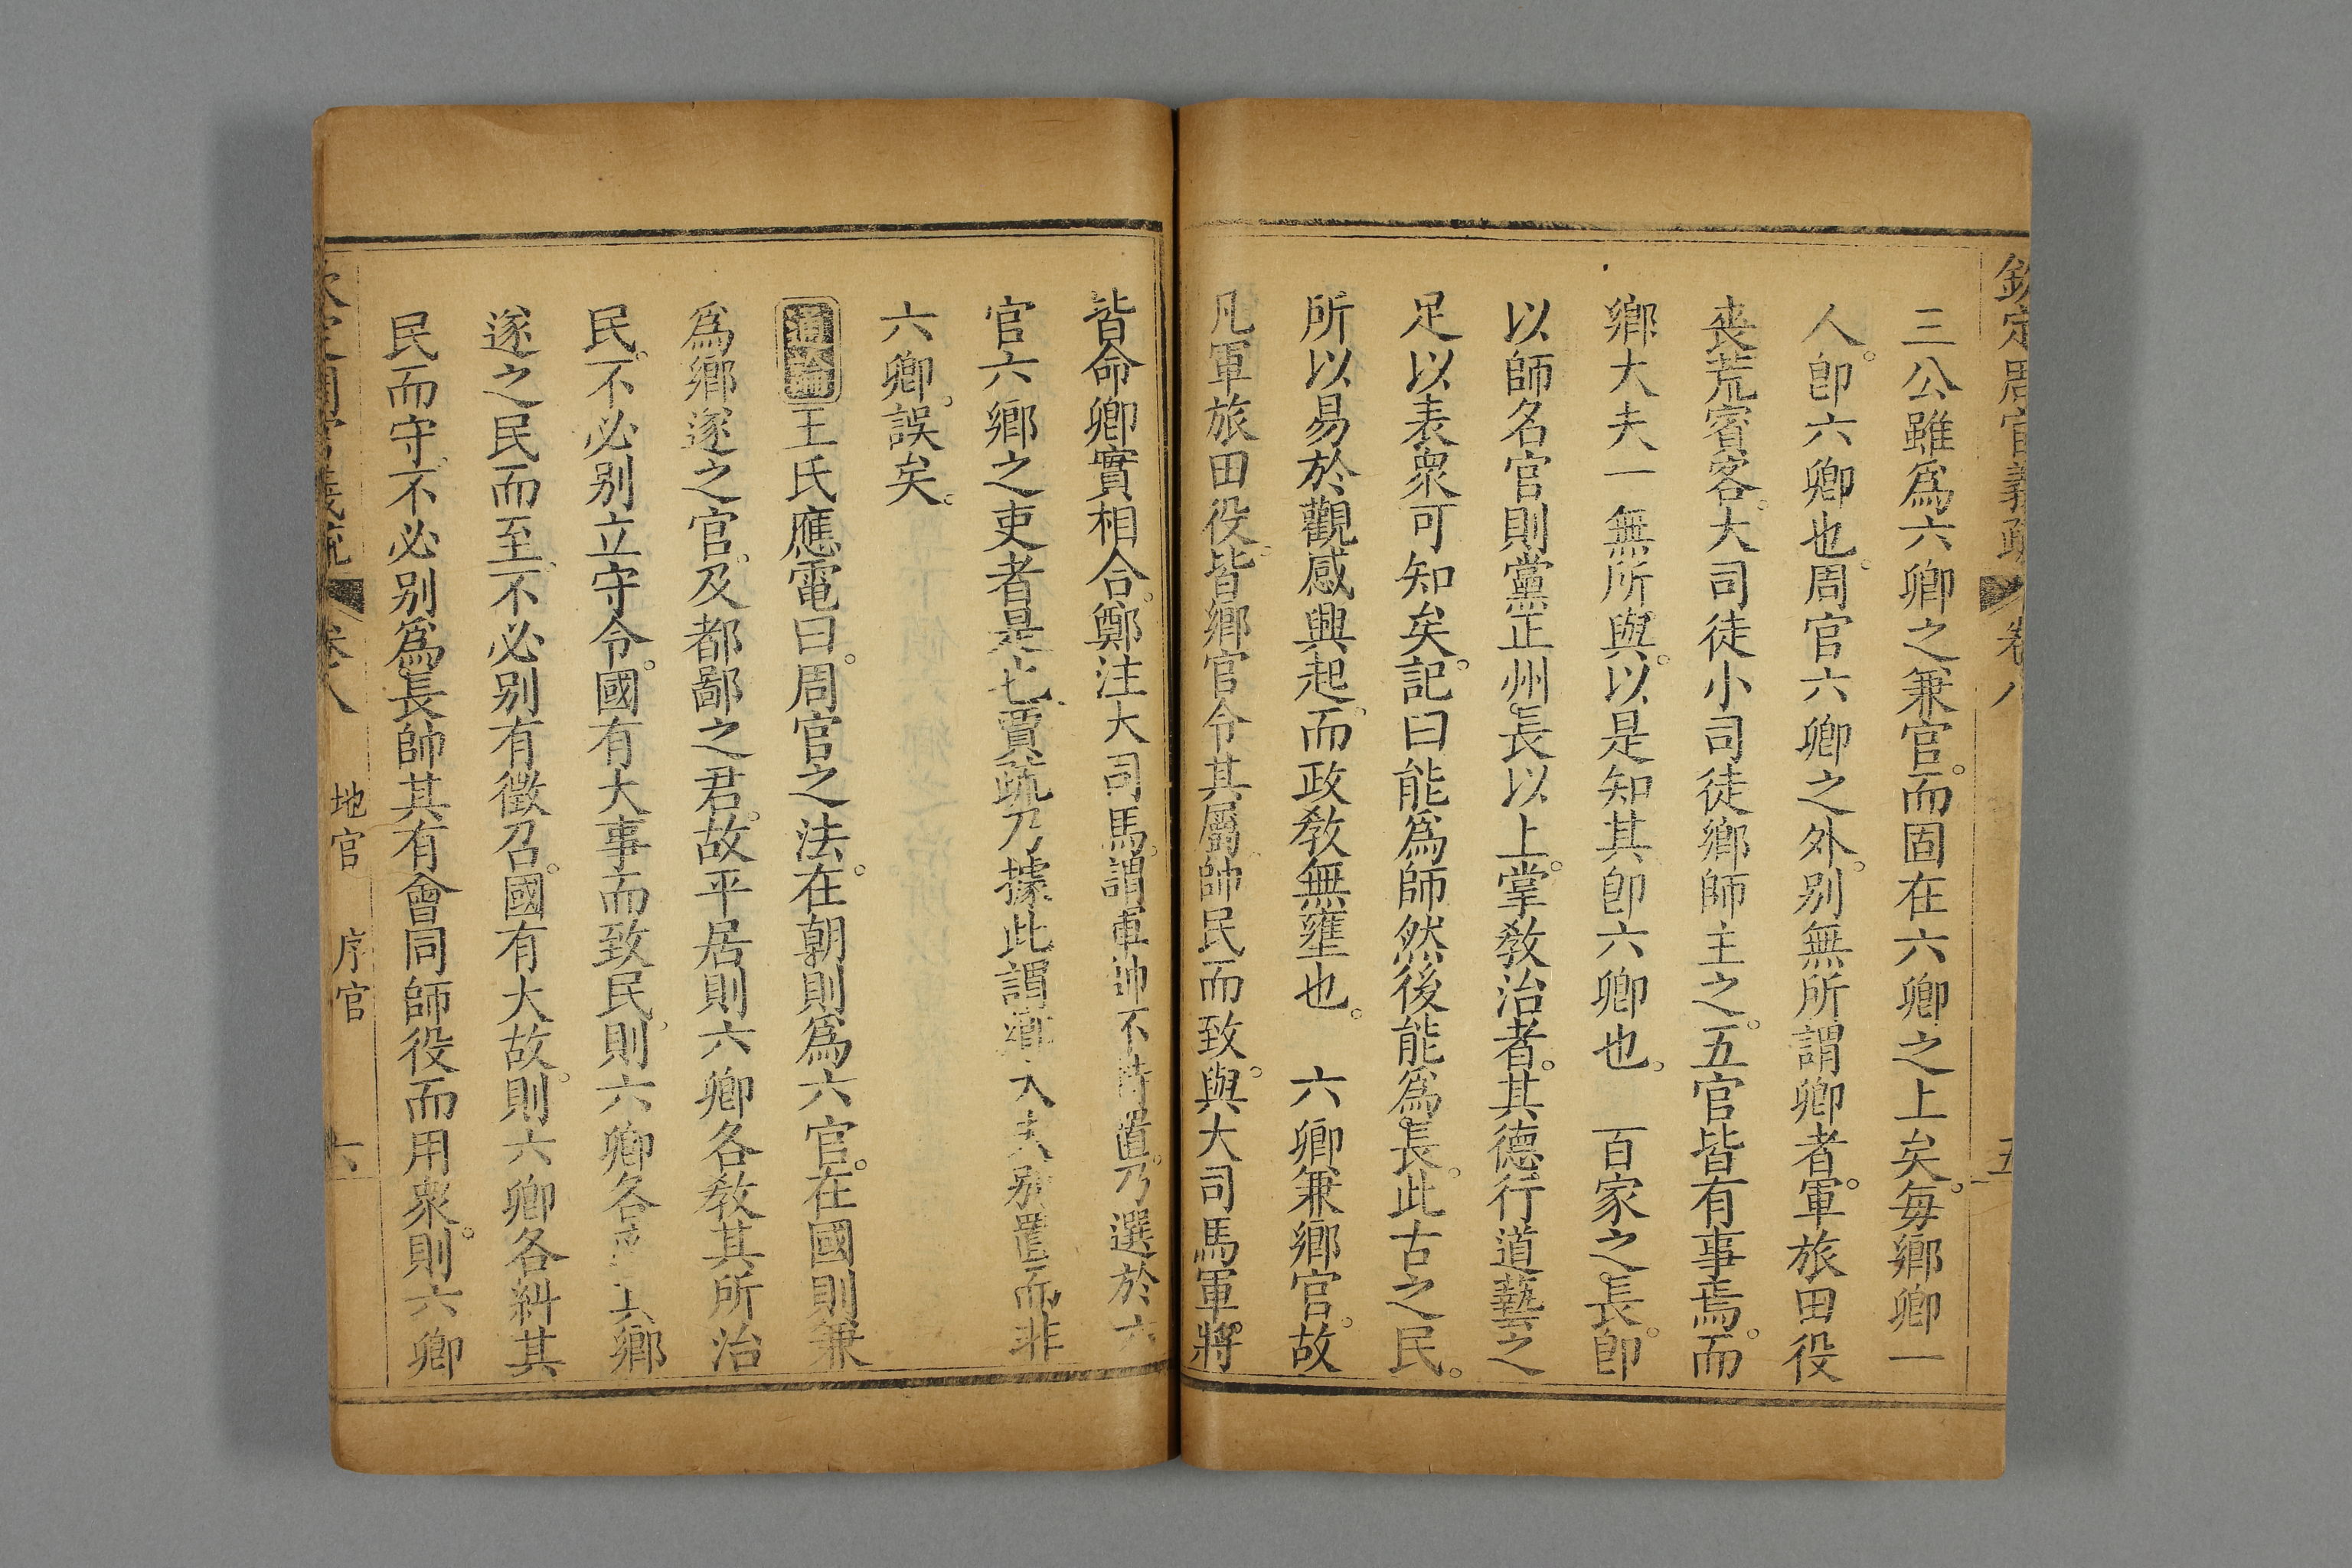 欽定周官義疏 卷八 五
三公雖爲六卿之兼官。而固在六卿之上矣。每鄉卿一
人。卽六卿也。周官六卿之外。別無所謂卿者。軍旅田役
喪荒賓客。大司徒小司徒鄉師主之。五官皆有事焉。而
鄉大夫一無所與。以是知其卽六卿也。 百家之長。卽
以師名官則黨正州長以上。掌敎治者。其德行道藝之
足以表衆可知矣。記曰能爲師然後能爲長。此古之民。
所以易於觀感興起。而政敎無壅也。 六卿兼鄉官。故
凡軍旅田役。皆鄉官令其屬。帥民而致。與大司馬軍將
皆命卿實相合。鄭注大司馬。謂軍帥不特置。乃選於六
官六鄉之吏者是也。賈疏乃據此謂鄉大夫別置而非
六卿。誤矣。
通論王氏應電曰。周官之法。在朝則爲六官。在國則兼
爲鄉遂之官。及都鄙之君。故平居則六卿各敎其所治
民。不必別立守令。國有大事而致民。則六卿各 其鄉
遂之民而至。不必別有徵召。國有大故。則六卿各糾其
民而守。不必別爲長帥其有會同師役而用衆。則六卿
欽定周官義疏 卷八 地官 序官 六